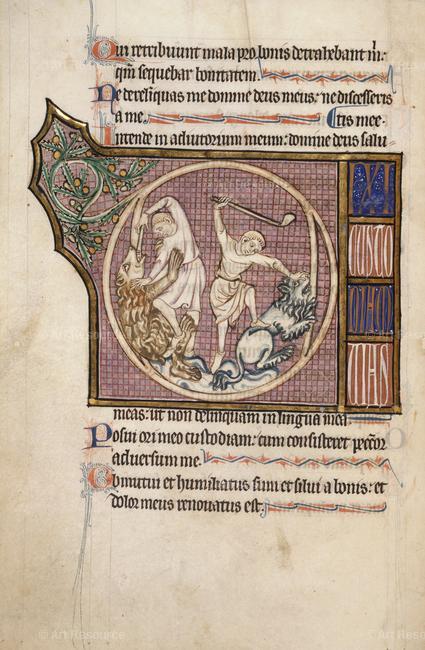 Qui retribuunt mala pro bonis detrahebant m̄:
qm̄ sequebar bonitatem.
Ne derelīquas me domine deus meus: ne discesseris
a me. tis mee.
Intende in adiutorium meum: domine deus salu
D IXI
CUSTO
DIAM
UIAS
meas: ut non delinquam in lingua mea.
Posui ori meo custodiam: cum consisteret
adversum me.
Obmutui et humiliatus sum et silui a bonis: et
dolor meus renouatus est.
© Art Resource